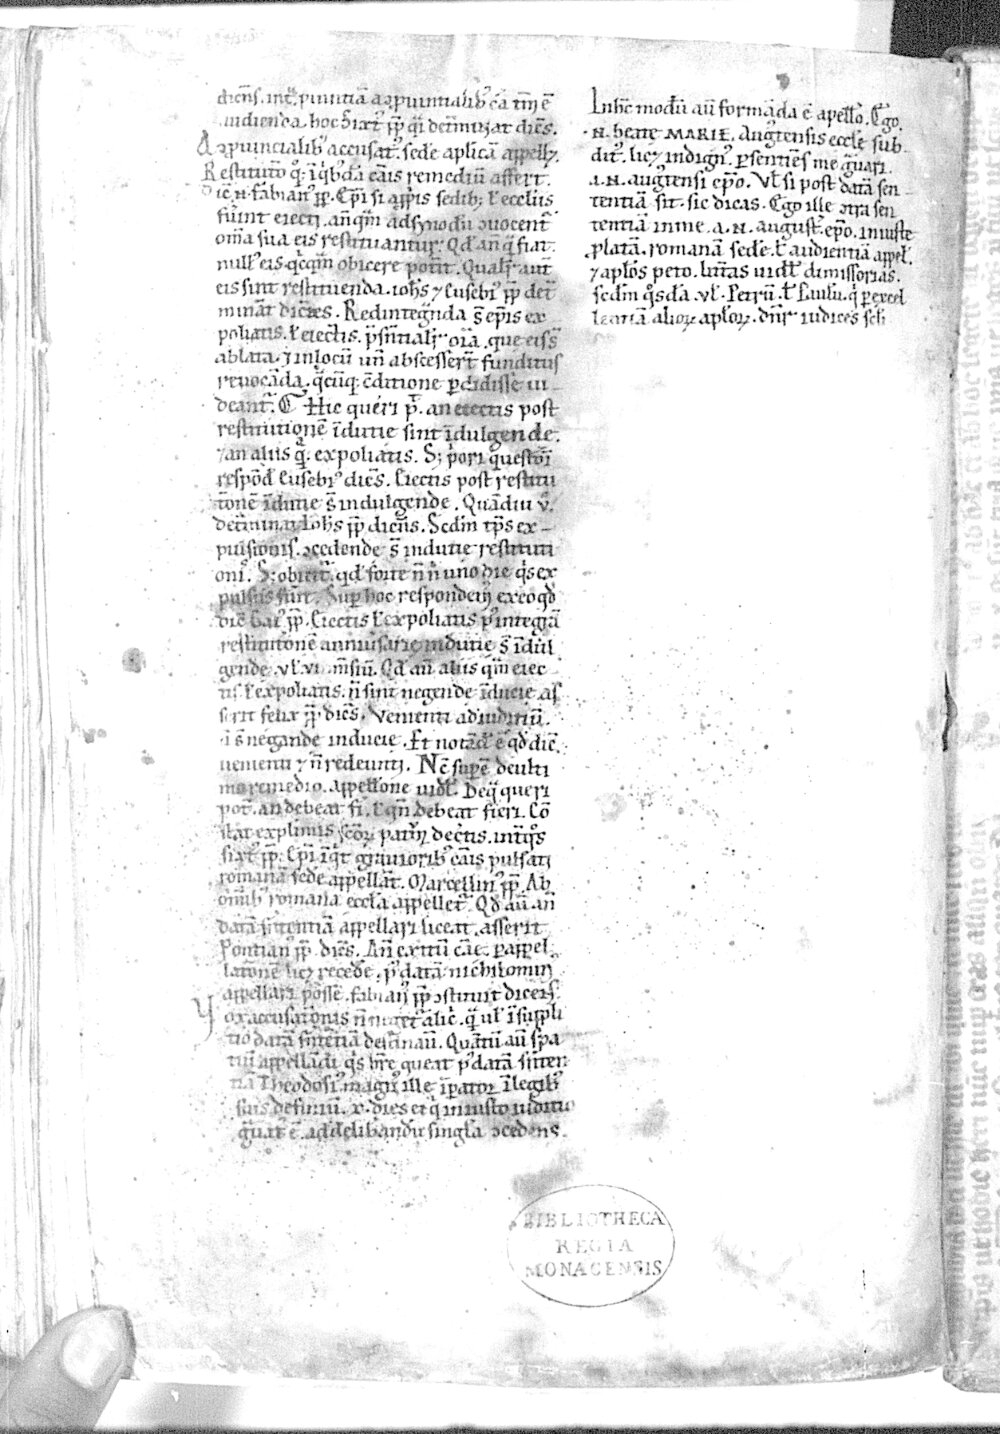 dicens. int̄ ꝓvintiā a ꝓvintialib' c̄a tm̄ ē
audienda. hoc Sixt' p̄p̄ q̄i det̄minat dicēs.
A ꝓvincialib' accusat'. sedē aplicā appellꝫ.
Restituto q̄i. iq̄bdā c̄ais remediū affert.
Dic̄. N. fabian' p̄p̄. Ep̄i si a ꝓp̄is sedib; ł eccl̄iis
fūint eiecti. anq̄m ad synodū vocent̄
om̄a sua eis restituantur. Qd an q̄ fiat.
null' eis. q̄cq̄m obicere pot̄it. Qualit̄ aut̄
eis sint restituenda. ioh̄s ⁊ Eusebi' p̄p̄ det̄
minat̄ dic̄tes. Redintegn̄da s̄ ep̄is ex
poliatis. ł eiectis. p̄sn̄tialit̄ om̄a. que eis s̄
ablata. ⁊ in locū un̄ abscesser̄t funditus
revocāda. q̄cūq; c̄ditione p̄didisse vi
deant̄. Hic queri p̄. an eiectis post
restitutionē īdutie sint īdulgende.
⁊ an aliis q̄. expoliatis. S; p̄ori questōi
respōd̄ Eusebi' dicēs. Eiectis post restitu
tōnē īdutie s̄ indulgende. Quādiu v̄.
det̄minat Ioh̄s p̄p̄ dicēns. Sedm̄ tp̄s ex
pulsionis. ɔcedende s̄ indutie restituti
oni'. S; obicit̄. qd̄ forte n̄ n̄ uno die q̄s ex
pulsus fūit. Sup̄ hoc respondem' ex eo qd̄
dic̄ Gai' p̄p̄. Eiectis ł expoliatis p̄ integrā
restitutōnē anniūsarie indutie s̄ īdul
gende. vł. vi. m̄siū. Qd̄ aū aliis q̄m eiec
tis. ł expoliatis. n̄ sint negende īducie. as
serit felix p̄p̄ dic̄s. Venienti ad iuditiū.
n̄ s̄ negande inducie. Et notād̄ ē qd̄ dic̄.
uenienti ⁊ n̄ redeunti. Nc̄ sup̄ē de ulti
mo remedio. appellone vidł. De q̄ queri
pot̄. an debeat fi'i. ł qn̄ debeat fieri. Cō
stat ex plimis scōꝝ patrū dec̄tis. int̄ q̄s
sixt' p̄p̄. Ep̄i īqt gravioribꝰ c̄ais pulsati
romanā sedē appellāt. Marcellin' p̄p̄. Ab
om̄ib' romana eccl̄a appellet̄. Qd̄ aū an̄
datā sn̄tentiā appellari liceat. asserit
Pontian' p̄p̄ dic̄s. An̄ exitū c̄ae. p̄ appel
lationē licꝫ recedē. p̄ datā nichilomin'
appellari possē. fabian' p̄p̄ ɔstituit dicens.
Vox accusationis n̄ neget' alic'. q̄ vł ī suppli
tio datā sn̄tētiā det̄inaū. Quātū aū spa
tiū appellādi q̄s hr̄e queat p̄ datā sn̄ten
tiā Theodosi' magn' ille ip̄ator ī legib'
suis definiū. x. dies et q̄ iniusto iuditio
ḡuat' ē. ad delibandū singła ɔcedens.
In hūc modū aū formāda ē apello. Ego.
N. beate MARIE. Augtensis eccl̄e sub
dit'. licꝫ indign'. p̄sentiēs me ḡuari.
a. N. augtensi ep̄o. Vł si post datā sen
tentiā sit. sic dicas. Ego ille ɔtra sen
tentiā in me. a. N. august. ep̄o. iniuste
platā. romanā sedē. ł audientiā appeł.
⁊ apłos peto. litt̄as vidł dimissorias.
secdm̄ q̄sdā. vł. Petrū. ł Paulū. q̄ p excel
lentiā alioꝝ aploꝝ. dn̄r iudices scł̄i
BIBLIOTHECA
REGIA
MONACENSIS